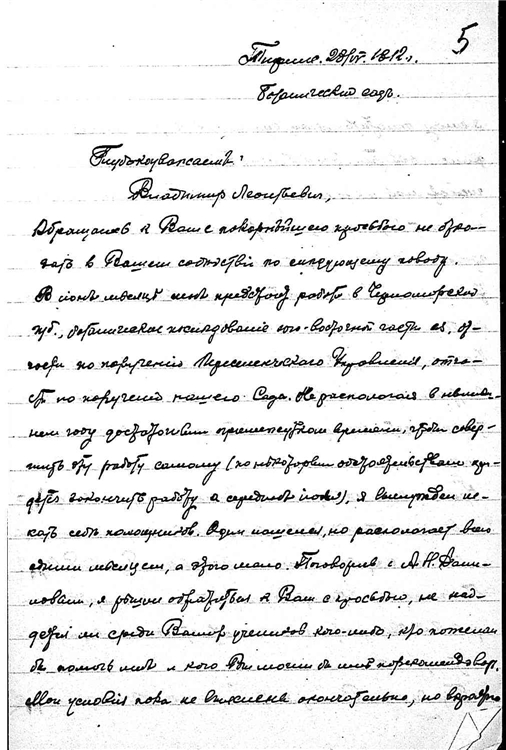 5
Тифлис. 28/IV. 1912 г.
Ботанический садъ.
Глубокоуважаемый
Владимир Леонтьевич,
Обращаюсь к Вам с покорнейшею просьбою не отка-
зать в Вашем содействии по следующему поводу.
В июне месяце мне предстоит работа в Черноморской
губ., ботаническое исследование юго-восточной части ея, от-
части по поручению Переселенческого Управления, отча-
сти по поручению нашего Сада. Не располагая в нынеш-
нем году достаточным промежутком времени, чтобы совер-
шить эту работу самому (по некоторым обстоятельствам при-
дется закончить работу в середине июля), я вынужден ис-
кать себе помощников. Один нашелся, но располагает всего
одним месяцем, а этого мало. Поговорив с А. Н. Дани-
ловым, я решил обратиться к Вам с просьбою, не най-
дется ли среди Ваших учеников кого-либо, кто пожелал
бы помочь мне и кого Вы могли бы мне порекомендовать.
Мои условия пока не выяснены окончательно, но вероятно